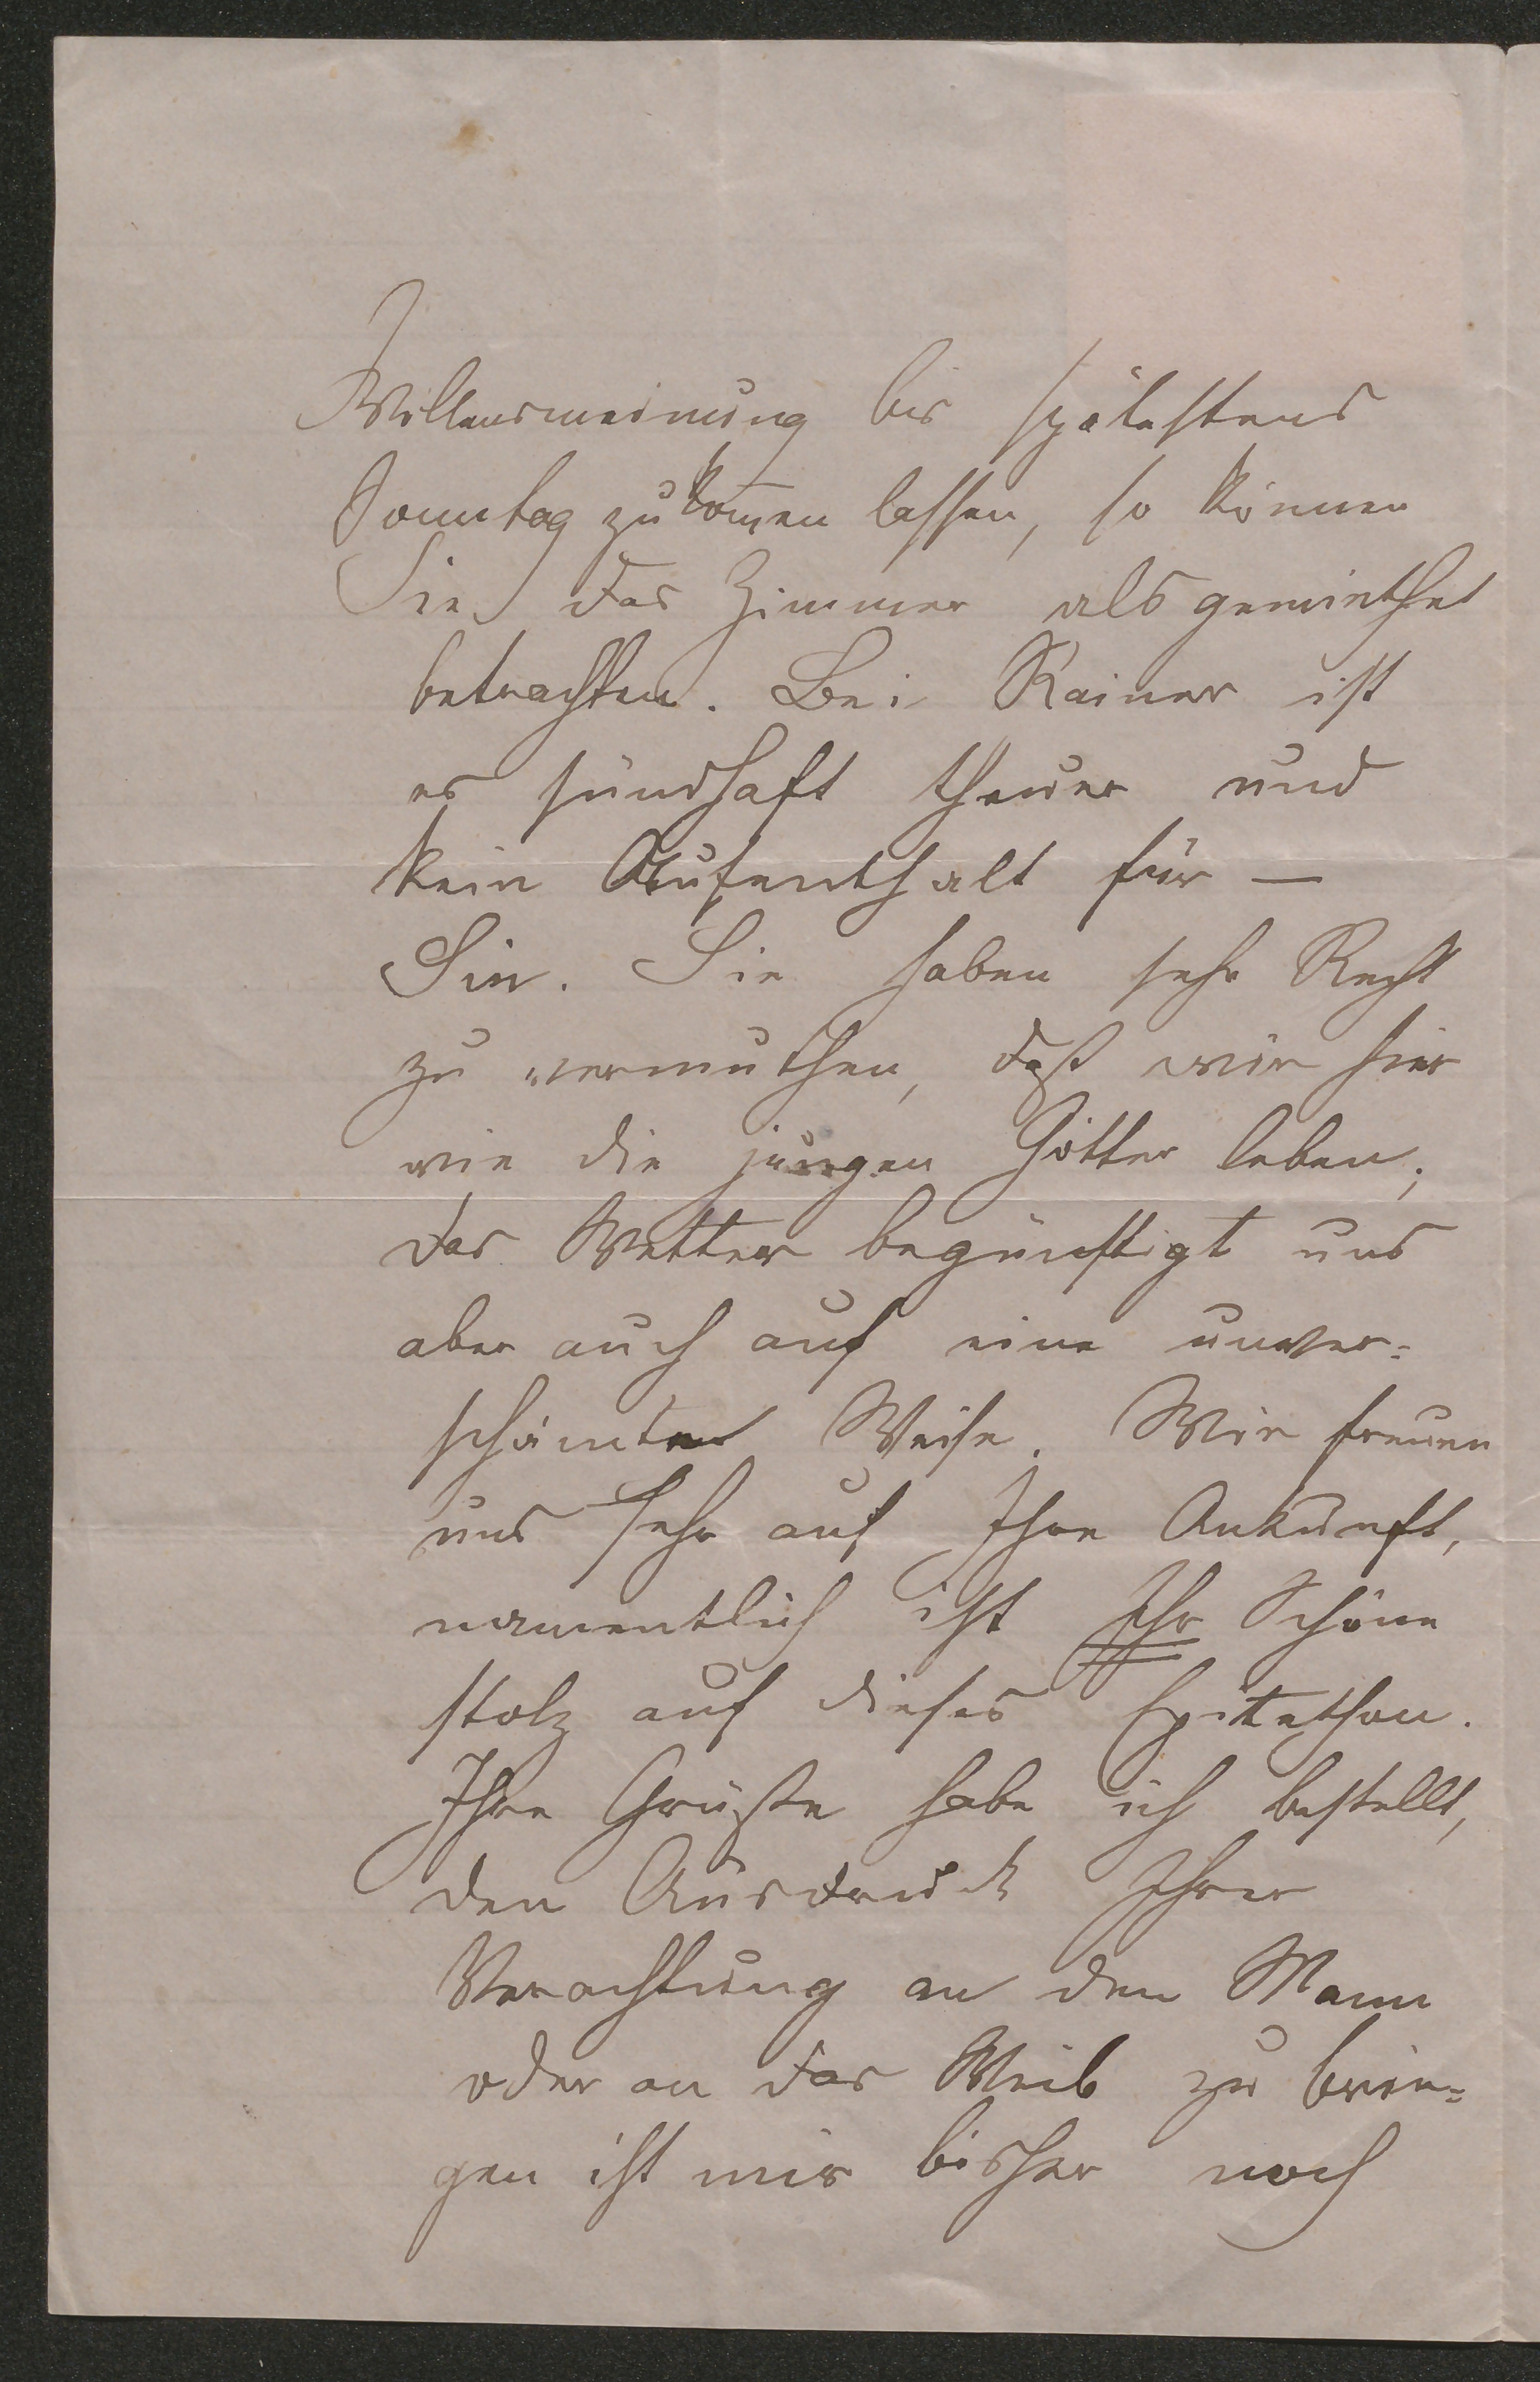 Willensmeinung bis spätestens
Sonntag zukom̅en lassen, so können
Sie das Zimmer als gemiethet
betrachten. Bei Rainer ist
es sündhaft theuer und
kein Aufenthalt für —
Sie. Sie haben sehr Recht
zu vermuthen, daß wir hier
wie die jungen Götter leben;
das Wetter begünstigt uns
aber auch auf eine unver=
schämte Weise. Wir freuen
uns sehr auf Ihre Ankunft,
namentlich ist Ihr Schöne
stolz auf dieses Epitethon.
Ihre Grüße habe ich bestellt,
den Ausdruck Ihrer
Verachtung an den Mann
oder an das Weib zu brin=
gen ist mir bisher noch